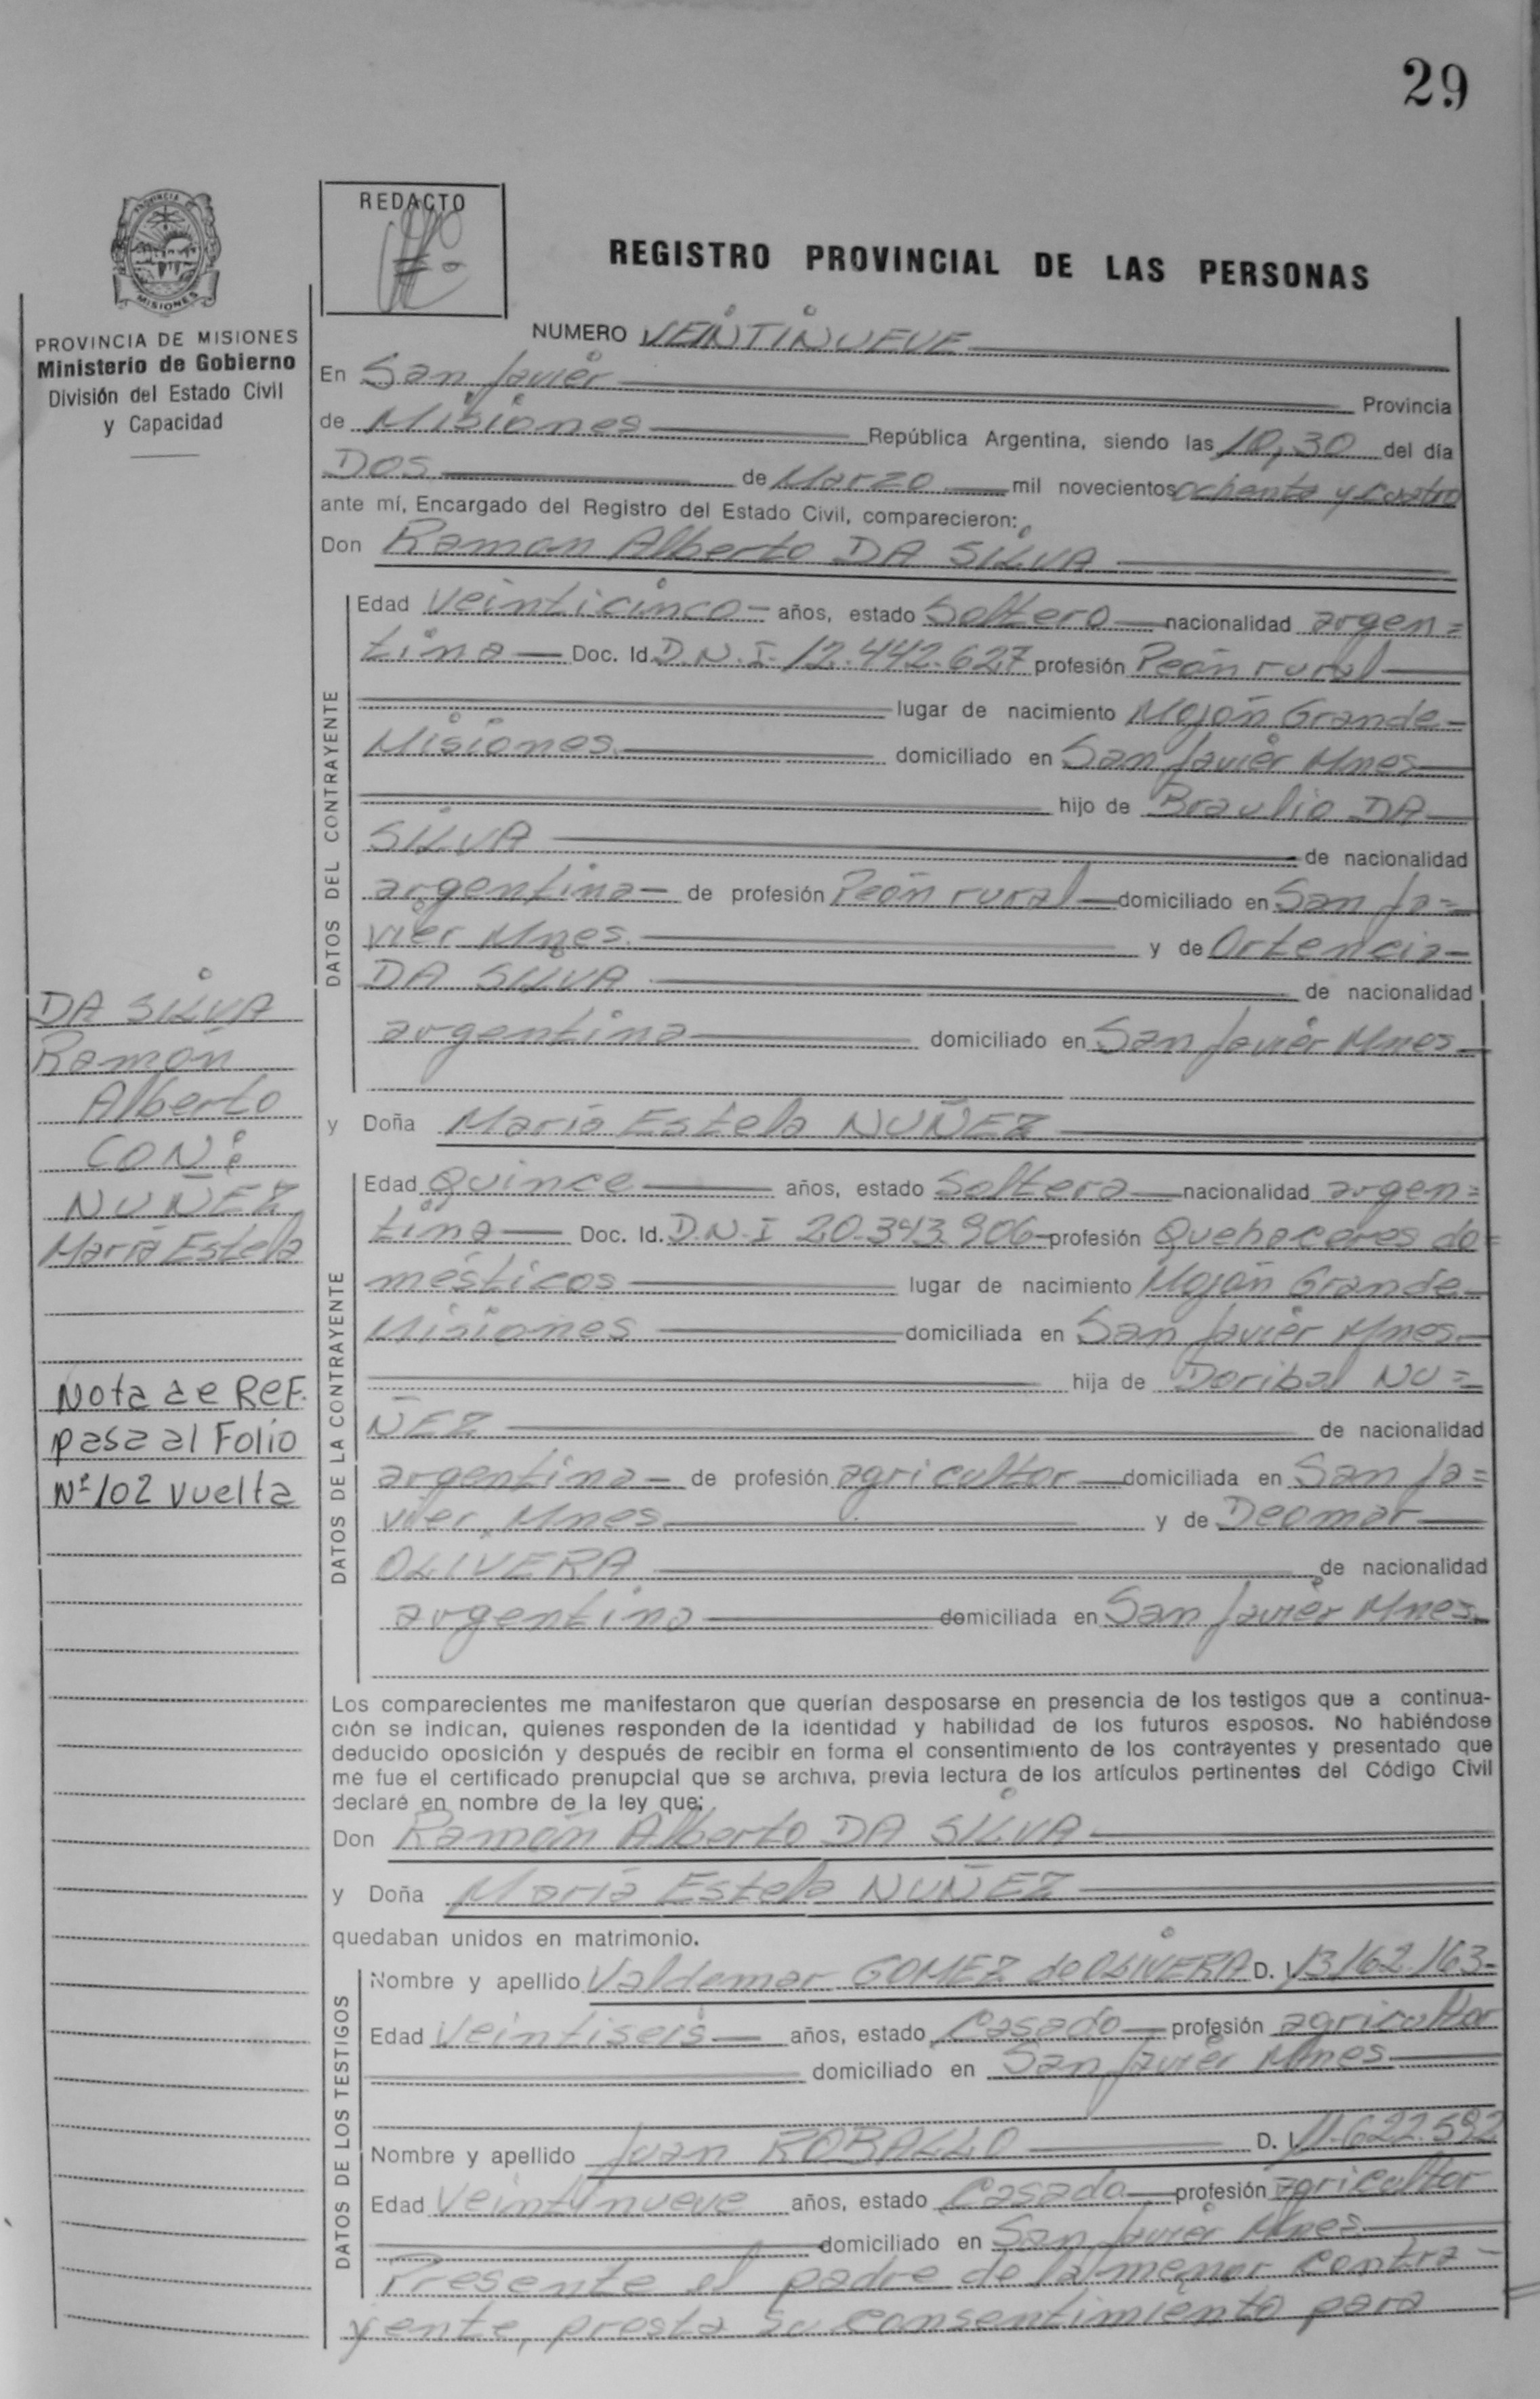 29
REDACTO
REGISTRO PROVINCIAL DE LAS PERSONAS
PROVINCIA DE MISIONES
Ministerio de Gobierno
División del Estado Civil
y Capacidad
NUMERO VEINTINUEVE
En San Javier Provincia
de Misiones República Argentina, siendo las 10,30 del día
DOS de Marzo mil novecientos ochenta y cuatro
ante mí, Encargado del Registro del Estado Civil, comparecieron:
Don Ramon Alberto DA SILVA
DATOS DEL CONTRAYENTE
Edad Veinticinco años, estado Soltero nacionalidad argen=
tina Doc. Id. D.N.I. 12.442.627 profesión Peón rural
lugar de nacimiento Mojón Grande
Misiones domiciliado en San Javier Mnes
hijo de Braulio DA
SILVA de nacionalidad
argentina de profesión Peón rural domiciliado en San Ja=
vier Mnes. y de Ortencia
DA SILVA de nacionalidad
argentina domiciliado en San Javier Mnes
DA SILVA
Ramón
Alberto
CON:
NUÑEZ
María Estela
Nota de Ref.
pasa al Folio
Nº 102 vuelta
y Doña María Estela NUÑEZ
DATOS DE LA CONTRAYENTE
Edad Quince años, estado Soltera nacionalidad argen=
tina Doc. Id. D.N.I 20.343.906 profesión Quehaceres do=
mésticos lugar de nacimiento Mojón Grande
Misiones domiciliada en San Javier Mnes
hija de Doribal NU=
ÑEZ de nacionalidad
argentina de profesión agricultor domiciliada en San Ja=
vier Mnes y de Deomar
OLIVERA de nacionalidad
argentina domiciliada en San Javier Mnes.
Los comparecientes me manifestaron que querían desposarse en presencia de los testigos que a continua-
ción se indican, quienes responden de la identidad y habilidad de los futuros esposos. No habiéndose
deducido oposición y después de recibir en forma el consentimiento de los contrayentes y presentado que
me fue el certificado prenupcial que se archiva, previa lectura de los artículos pertinentes del Código Civil
declaré en nombre de la ley que:
Don Ramón Alberto DA SILVA
y Doña María Estela NUÑEZ
quedaban unidos en matrimonio.
DATOS DE LOS TESTIGOS
Nombre y apellido Valdemar GOMEZ de OLIVERA D. I. 13.162.163
Edad Veintiseis años, estado Casado profesión agricultor
domiciliado en San Javier Mnes
Nombre y apellido Juan ROBALLO D. I. 11.622.592
Edad Veintinueve años, estado Casado profesión agricultor
domiciliado en San Javier Mnes
Presente el padre de la menor contra-
yente, presta su consentimiento para